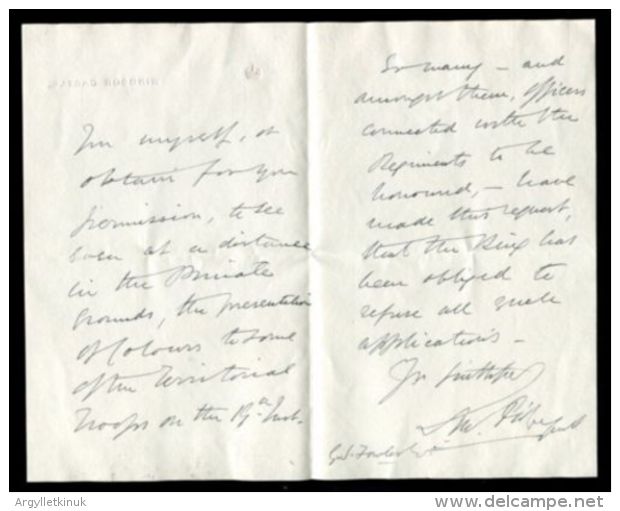 WINDSOR CASTLE
for myself, or
obtain for you
permission, to see
even at a distance
in the Private
Grounds, the presentation
of Colours to some
of the Territorial
Troops on the 19th Inst.
So many - and
amongst them, officers
connected with the
Regiments to be
honoured, - have
made this request,
that the King has
been obliged to
refuse all such
applications -
Yr
Argylletkinuk
delcampe.net